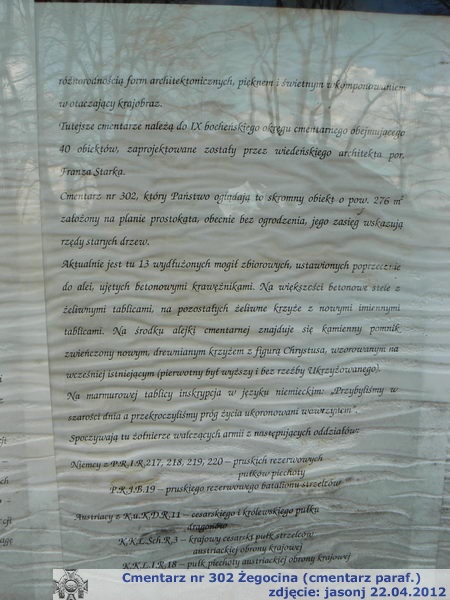 różnorodnością form architektonicznych, pięknem i świetnym wkomponowaniem
w otaczający krajobraz.
Tutejsze cmentarze należą do IX bocheńskiego okręgu cmentarnego obejmującego
40 obiektów, zaprojektowane zostały przez wiedeńskiego architekta por.
Franza Starka.
Cmentarz nr 302, który Państwo oglądają to skromny obiekt o pow. 276 m²
założony na planie prostokąta, obecnie bez ogrodzenia, jego zasięg wskazują
rzędy starych drzew.
Aktualnie jest tu 13 wydłużonych mogił zbiorowych, ustawionych poprzecznie
do alei, ujętych betonowymi krawężnikami. Na większości betonowe stele z
żeliwnymi tablicami, na pozostałych żeliwne krzyże z nowymi imiennymi
tablicami. Na środku alejki cmentarnej znajduje się kamienny pomnik
zwieńczony nowym, drewnianym krzyżem z figurą Chrystusa, wzorowanym na
wcześniej istniejącym (pierwotny był wyższy i bez rzeźby Ukrzyżowanego).
Na marmurowej tablicy inskrypcja w języku niemieckim: „Przybyliśmy w
szarości dnia a przekroczyliśmy próg życia ukoronowani wawrzynem".
Spoczywają tu żołnierze walczących armii z następujących oddziałów:
Niemcy z P.R.I.R.217, 218, 219, 220 – pruskich rezerwowych
pułków piechoty
P.R.J.B.19 – pruskiego rezerwowego batalionu strzelców
Austriacy z K.u.K.D.R.11 – cesarskiego i królewskiego pułku
dragonów
K.K.L.Sch.R.3 – krajowy cesarski pułk strzelców
austriackiej obrony krajowej
K.K.L.I.R.18 – pułk piechoty austriackiej obrony krajowej
Cmentarz nr 302 Żegocina (cmentarz paraf.)
zdjęcie: jasonj 22.04.2012